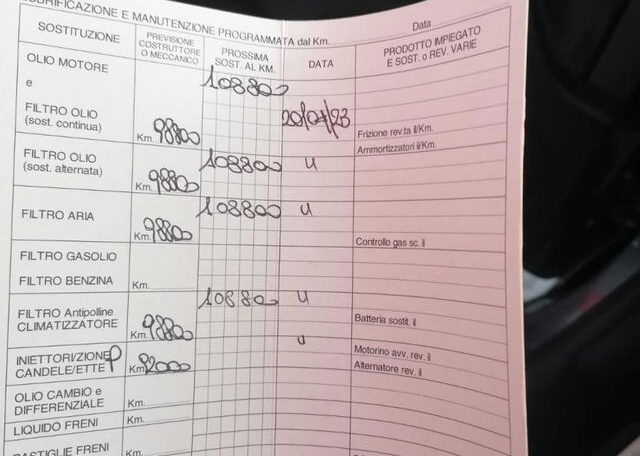 LUBRIFICAZIONE E MANUTENZIONE PROGRAMMATA dal Km.
Data
SOSTITUZIONE
PREVISIONE
COSTRUTTORE
O MECCANICO
PROSSIMA
SOST. AL KM.
DATA
PRODOTTO IMPIEGATO
E SOST. o REV. VARIE
OLIO MOTORE
e
FILTRO OLIO
(sost. continua)
Km. 98800
108800
20/04/23
Frizione rev.ta il/Km.
Ammortizzatori il/Km.
FILTRO OLIO
(sost. alternata)
Km. 98800
108800
u
FILTRO ARIA
Km. 98800
108800
u
Controllo gas sc. il
FILTRO GASOLIO
FILTRO BENZINA
Km.
FILTRO Antipolline
CLIMATIZZATORE
Km. 98800
10880
u
Batteria sostit. il
INIETTORI/ZIONE P
CANDELE/ETTE
Km 82000
u
Motorino avv. rev. il
Alternatore rev. il
OLIO CAMBIO e
DIFFERENZIALE
Km.
LIQUIDO FRENI
Km.
PASTIGLIE FRENI
Km.